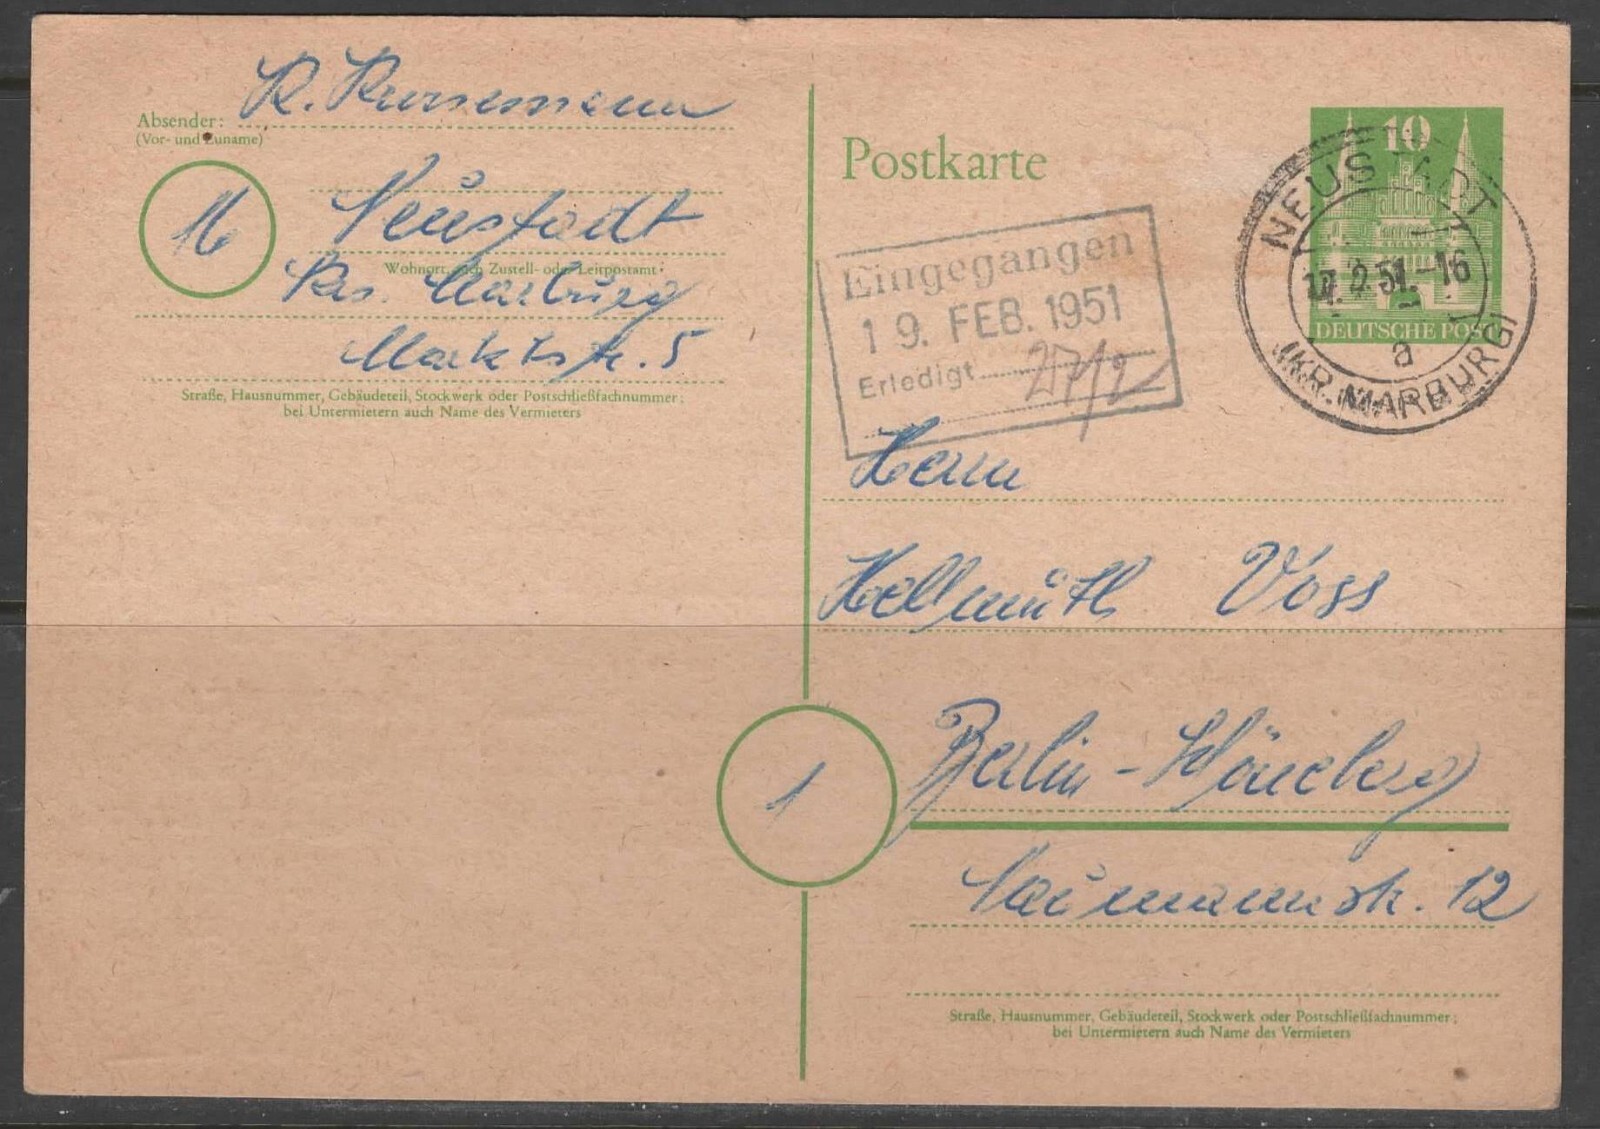 Absender: R.
(Vor- und Zuname)
16
Neustadt
Wohnort, auch Zustell- oder Leitpostamt
Krs. Marburg
Marktstr. 5
Straße, Hausnummer, Gebäudeteil, Stockwerk oder Postschließfachnummer;
bei Untermietern auch Name des Vermieters
Postkarte
10
DEUTSCHE POST
NEUSTADT
2.51.-16
a
(KR. MARBURG)
Eingegangen
19. FEB. 1951
Erledigt 27/2
Herrn
Hellmuth Voss
1
Berlin-Schöneberg
Naumannstr. 12
Straße, Hausnummer, Gebäudeteil, Stockwerk oder Postschließfachnummer;
bei Untermietern auch Name des Vermieters